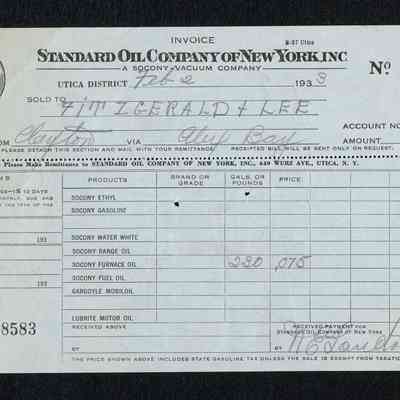 INVOICE
B-27 Utica
STANDARD OIL COMPANY OF NEW YORK, INC
A SOCONY-VACUUM COMPANY
Nº
UTICA DISTRICT Feb 2 1933
SOLD TO FITZGERALD & LEE
ACCOUNT NO
OM Clayton VIA Alex Bay AMOUNT
PLEASE DETACH THIS SECTION AND MAIL WITH YOUR REMITTANCE RECEIPTED BILL WILL BE SENT ONLY ON REQUEST.
Please Make Remittances to STANDARD OIL COMPANY OF NEW YORK, INC., AVE., UTICA, N. Y.
PRODUCTS BRAND OR GRADE GALS. OR POUNDS PRICE
10 DAYS
SOCONY ETHYL
SOCONY GASOLINE
193 SOCONY WATER WHITE
SOCONY RANGE OIL
193 SOCONY FURNACE OIL 220 .075
SOCONY FUEL OIL
GARGOYLE MOBILOIL
LUBRITE MOTOR OIL
8583
RECEIVED ABOVE
RECEIVED PAYMENT FOR
STANDARD OIL COMPANY OF NEW YORK
BY
BY
THE PRICE SHOWN ABOVE INCLUDES STATE GASOLINE TAX UNLESS THE SALE IS EXEMPT FROM TAXATIO